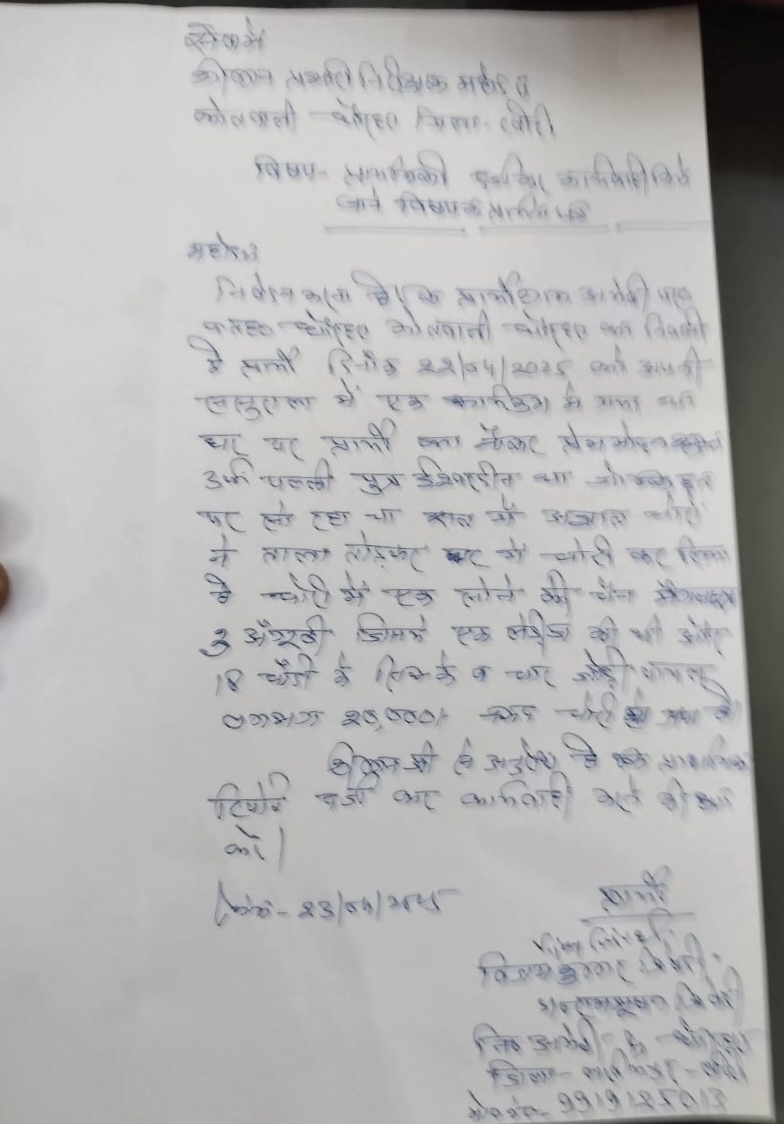 सेवा में
श्रीमान प्रभारी निरीक्षक महोदय
कोतवाली धौरहरा जिला- खीरी
विषय- प्राथमिकी दर्ज कर कार्यवाही किये
जाने विषयक प्रार्थना पत्र
महोदय
निवेदन करना है कि प्रार्थी ग्राम
धौरहरा कोतवाली धौरहरा का निवासी
है प्रार्थी दिनाँक 22/04/2025 को अपनी
ससुराल में एक कार्यक्रम में गया था
घर पर प्रार्थी का नौकर
उर्फ पुत्र था
पर सो रहा था रात में अज्ञात चोरों
ने ताला तोड़कर घर में चोरी कर लिया
है चोरी में एक सोने की चैन मंगलसूत्र
3 अँगूठी जिसमें एक लेडीज की थी और
18 चाँदी के सिक्के व चार जोड़ी पायल
लगभग 20,000/- नकद चोरी हो गया है
श्रीमान जी से अनुरोध है कि प्राथमिकी
रिपोर्ट दर्ज कर कार्यवाही करने की कृपा
करें।
दिनांक- 23/04/2025
प्रार्थी
विजय कुमार त्रिवेदी
त्रिवेदी
धौरहरा
जिला- लखीमपुर- खीरी
मो० नं०- 9919125013